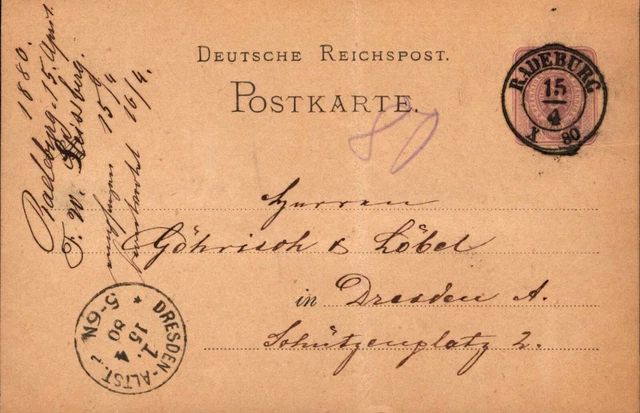 DEUTSCHE REICHSPOST.
POSTKARTE.
RADEBURG
15
4
X 80
80
Herren
Göhrisch & Löbel
in Dresden A.
Schützenplatz 2.
1880.
Radeburg 15. April.
F. W.
empfangen 15/4
16/4.
DRESDEN-ALTST. 1.
15 4
80
5-6N